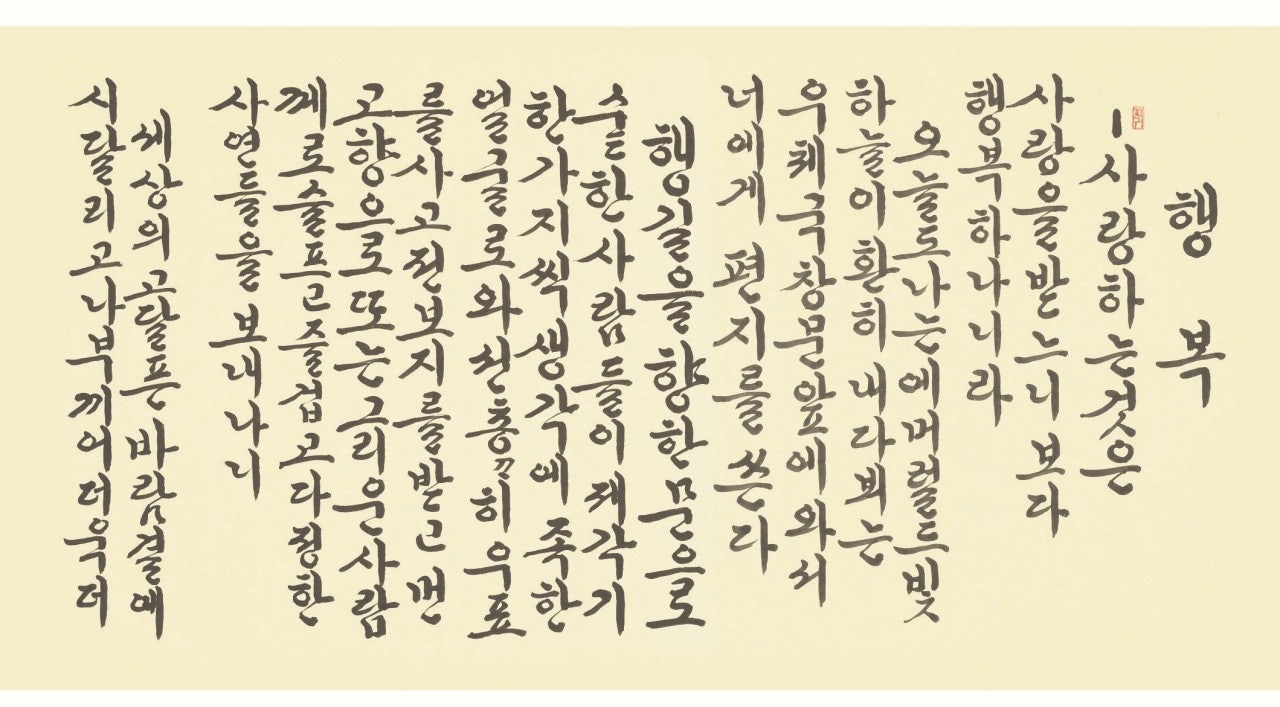 행 복
- 사랑하는것은
사랑을받느니보다
행복하나니라
오늘도나는에머럴드빛
하늘이환히 내다뵈는
우체국창문앞에와서
너에게 편지를 쓴다
행길을향한문으로
숱한사람들이제각기
한가지씩생각에족한
얼굴로와선총〃히우표
를사고전보지를받고먼
고향으로또는그리운사람
께로슬프고즐겁고다정한
사연들을보내나니
세상의고달픈바람결에
시달리고나부끼어더욱더